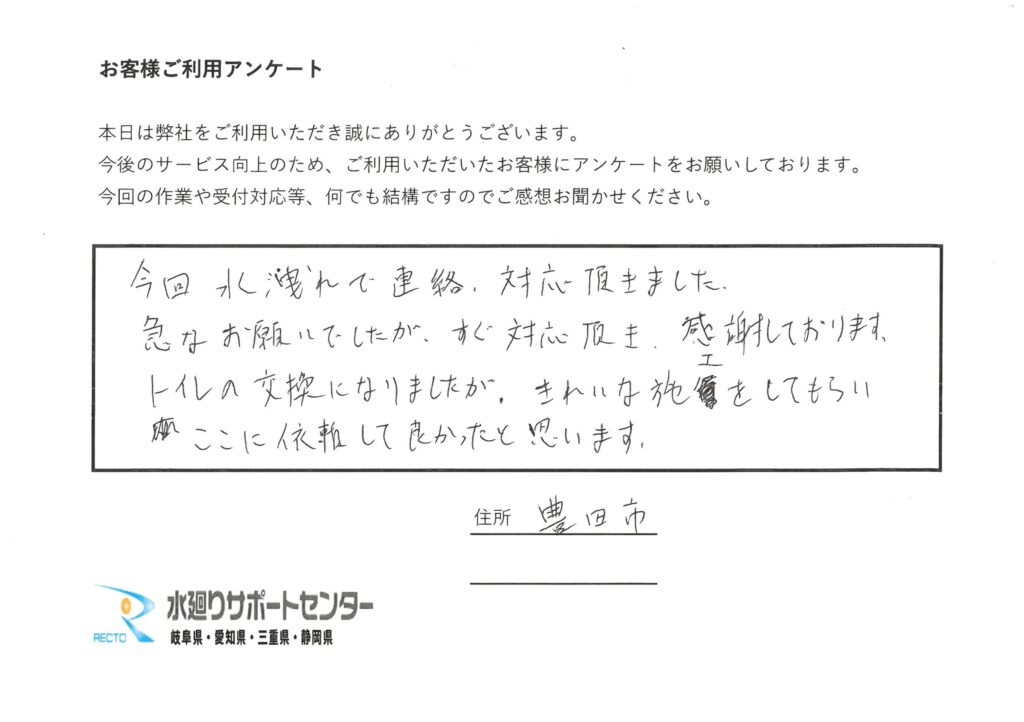 お客様ご利用アンケート
本日は弊社をご利用いただき誠にありがとうございます。
今後のサービス向上のため、ご利用いただいたお客様にアンケートをお願いしております。
今回の作業や受付対応等、何でも結構ですのでご感想お聞かせください。
今回 水洩れで連絡、対応頂きました。
急なお願いでしたが、すぐ対応頂き、感謝しております。
トイレの交換になりましたが、きれいな施工をしてもらい
ここに依頼して良かったと思います。
住所 豊田市
RECTO 水廻りサポートセンター
岐阜県・愛知県・三重県・静岡県